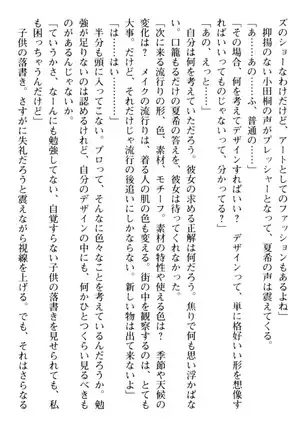 ズのショーなわけだけど、アートとしてのファッションもあるわ」
抑揚のない小田桐の声がプレッシャーとなって、夏希の声は震えてくる。
「あ……あの、ふ、普通の……」
「その場合、何を考えてデザインすればいい？　デザインって、単に格好いい形を想像すればいいってものじゃないって、分かってる？」
「あの、えっと……」
自分は何を考えていただろう。彼女の求める正解は何だろう。焦りで何も思い浮かばない。口籠もるだけの夏希の答えを、彼女は待ってくれなかった。
「次に来る流行りの形、色、素材、モチーフ。素材の特性にも使える色は？　季節や天候の変化は？　メイクの流行りは、着る人の肌の色も変える。街の中を観察するのは、とても大事。だけど、それだけじゃ流行の後追いにしかならない。新しい物は出て来ないよ」
「は……はい……」
半分も頭に入ってこない。プロって、そんなに色々なことを考えているんだろうか。勉強が足りないのは認めるけれど、自分のデザインの中にも、何かひとつくらい見るべきものがあるんじゃないか。
「ていうかさ、なーんにも勉強してない、自覚すらない子供の落書きを見せられても、私も困っちゃうんだけど」
子供の落書き。さすがに失礼だろうと震えながら視線を上げる。でも、それはさらなる